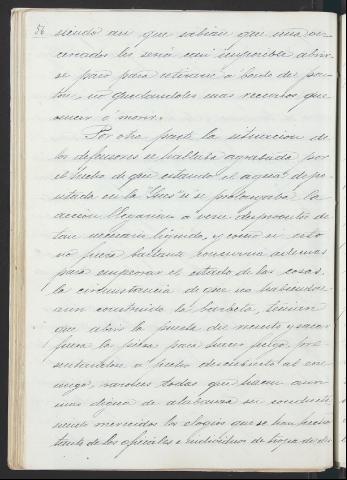 56
siendo asi que sabian que una vez
cercados les seria casi imposible abrir-
se paso para retirarse a bordo de pon-
ton, no quedandoles mas recurso que
vencer o morir.
Por otra parte la situacion de
los defensores se hallaba agravada por
el hecho de que estando el agua de po-
sitada en la "Ines" si se prolongaba la
accion llegarian a verse desprovistos de
tan necesario liquido, y como si esto
no fuera bastante concurria ademas
para empeorar el estado de las cosas
la circunstancia de que no habiendose
aun construido la barbeta, tenian
que abrir la puerta del reducto y sacar
fuera la pieza para hacer fuego, pre-
sentandose a pecho descubierto al ene-
migo, razones todas que hacen aun
mas digna de alabanza su conducta
siendo merecidos los elogios que se han hecho
tanto de los oficiales e individuos de tropa de